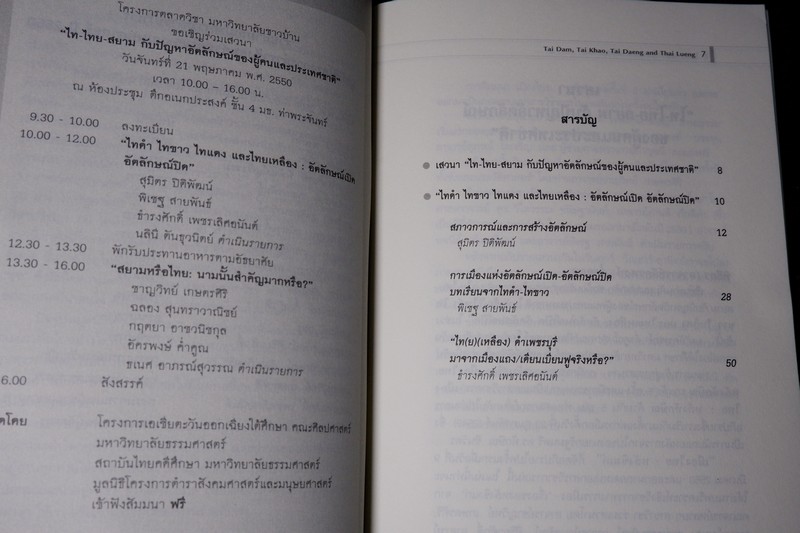 โครงการตลาดวิชา มหาวิทยาลัยชาวบ้าน
ขอเชิญร่วมเสวนา
"ไท-ไทย-สยาม กับปัญหาอัตลักษณ์ของผู้คนและประเทศชาติ"
วันจันทร์ที่ 21 พฤษภาคม พ.ศ. 2550
เวลา 10.00 – 16.00 น.
ณ ห้องประชุม ตึกอเนกประสงค์ ชั้น 4 มธ. ท่าพระจันทร์
9.30 - 10.00 ลงทะเบียน
10.00 - 12.00 "ไทดำ ไทขาว ไทแดง และไทยเหลือง : อัตลักษณ์เปิด
อัตลักษณ์ปิด"
สุมิตร ปิติพัฒน์
พิเชฐ สายพันธ์
ธำรงศักดิ์ เพชรเลิศอนันต์
นลินี ตันธุวนิตย์ ดำเนินรายการ
12.30 - 13.30 พักรับประทานอาหารตามอัธยาศัย
13.30 - 16.00 "สยามหรือไทย: นามนั้นสำคัญมากหรือ?"
ชาญวิทย์ เกษตรศิริ
ฉลอง สุนทราวาณิชย์
กฤตยา อาชวนิชกุล
อัครพงษ์ ค่ำคูณ
ธเนศ อาภรณ์สุวรรณ ดำเนินรายการ
6.00 สังสรรค์
โดย โครงการเอเชียตะวันออกเฉียงใต้ศึกษา คณะศิลปศาสตร์
มหาวิทยาลัยธรรมศาสตร์
สถาบันไทยคดีศึกษา มหาวิทยาลัยธรรมศาสตร์
มูลนิธิโครงการตำราสังคมศาสตร์และมนุษยศาสตร์
เข้าฟังสัมมนา ฟรี
Tai Dam, Tai Khao, Tai Daeng and Thai Lueng 7
สารบัญ
เสวนา "ไท-ไทย-สยาม กับปัญหาอัตลักษณ์ของผู้คนและประเทศชาติ" 8
"ไทดำ ไทขาว ไทแดง และไทยเหลือง : อัตลักษณ์เปิด อัตลักษณ์ปิด" 10
สภาวการณ์และการสร้างอัตลักษณ์ 12
สุมิตร ปิติพัฒน์
การเมืองแห่งอัตลักษณ์เปิด-อัตลักษณ์ปิด
บทเรียนจากไทดำ-ไทขาว 28
พิเชฐ สายพันธ์
"ไท(ย)(เหลือง) ดำเพชรบุรี
มาจากเมืองแถง/เดียนเบียนฟูจริงหรือ?" 50
ธำรงศักดิ์ เพชรเลิศอนันต์